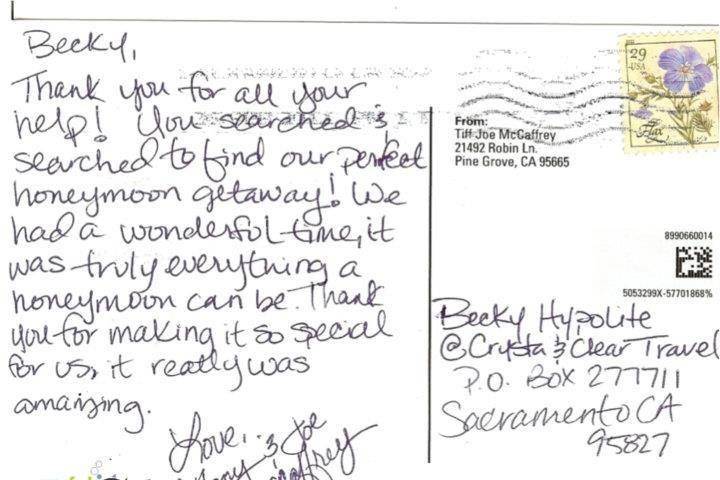 Becky,
Thank you for all your
help! You searched &
searched to find our perfect
honeymoon getaway! We
had a wonderful time, it
was truly everything a
honeymoon can be. Thank
you for making it so special
for us, it really was
amaizing.
Love,
& Joe
29
USA
Flax
From:
Tiff Joe McCaffrey
21492 Robin Ln.
Pine Grove, CA 95665
8990660014
5053299X-57701868%
Becky Hypolite
@Crystal Clear Travel
P.O. Box 277711
Sacramento CA
95827